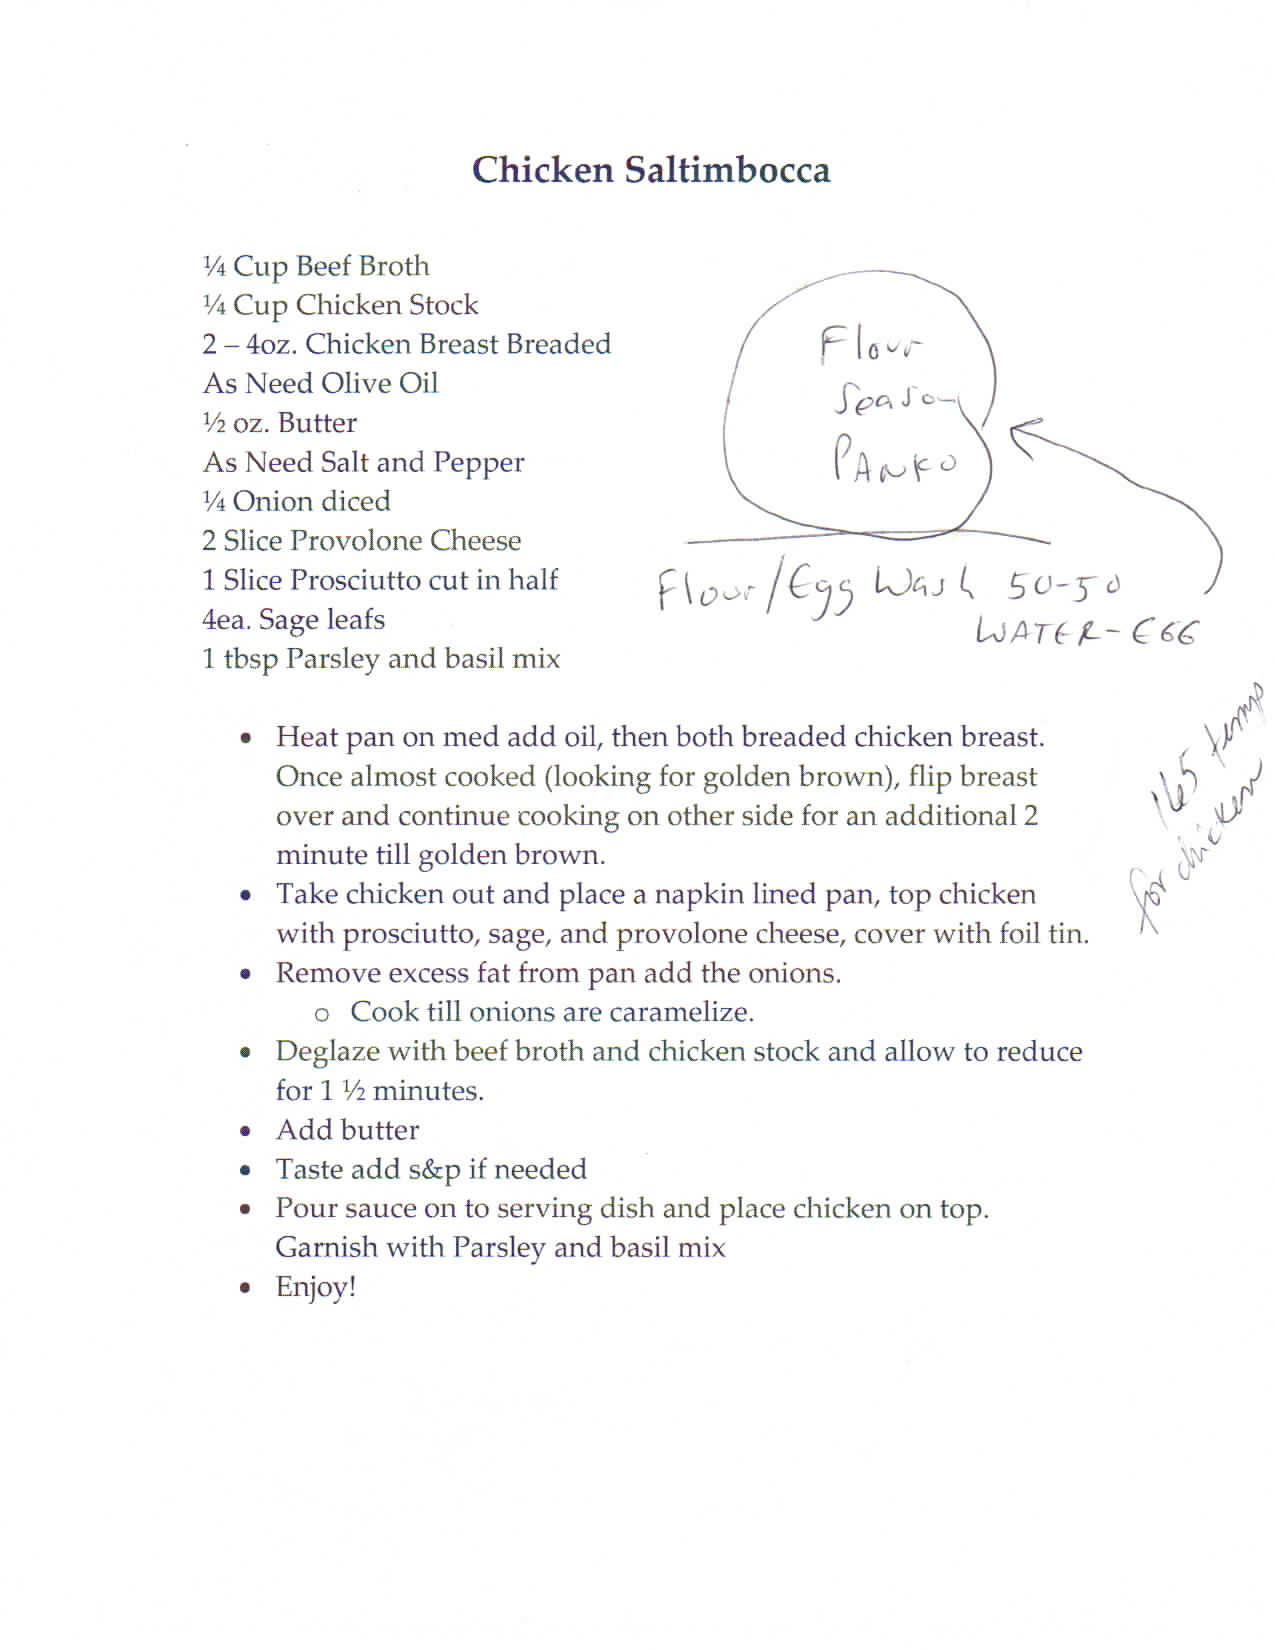 Chicken Saltimbocca
¼ Cup Beef Broth
¼ Cup Chicken Stock
2 – 4oz. Chicken Breast Breaded
As Need Olive Oil
½ oz. Butter
As Need Salt and Pepper
¼ Onion diced
2 Slice Provolone Cheese
1 Slice Prosciutto cut in half
4ea. Sage leafs
1 tbsp Parsley and basil mix
Flour
Season
PANKO
Flour/Egg Wash 50-50
WATER-EGG
• Heat pan on med add oil, then both breaded chicken breast.
Once almost cooked (looking for golden brown), flip breast
over and continue cooking on other side for an additional 2
minute till golden brown.
• Take chicken out and place a napkin lined pan, top chicken
with prosciutto, sage, and provolone cheese, cover with foil tin.
• Remove excess fat from pan add the onions.
o Cook till onions are caramelize.
• Deglaze with beef broth and chicken stock and allow to reduce
for 1 ½ minutes.
• Add butter
• Taste add s&p if needed
• Pour sauce on to serving dish and place chicken on top.
Garnish with Parsley and basil mix
• Enjoy!
165 temp
for chicken